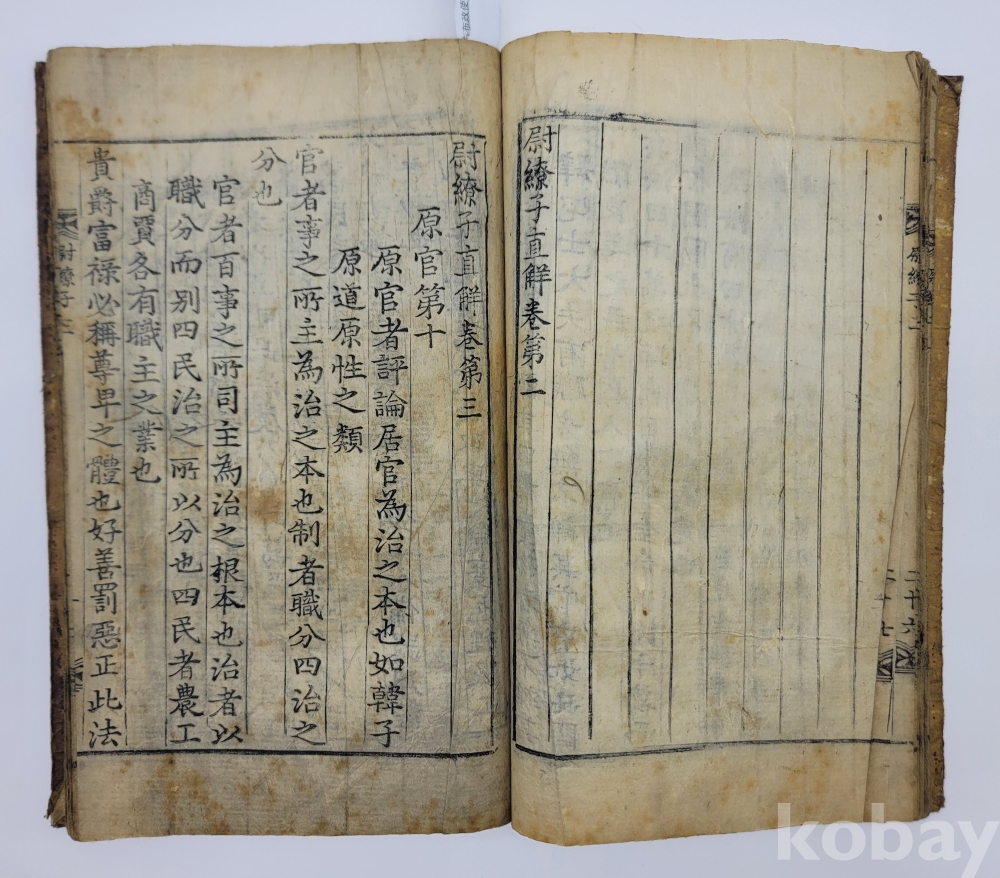 尉繚子直解卷第二
尉繚子直解卷第三
原官第十
原官者評論居官為治之本也如韓子
原道原性之類
官者事之所主為治之本也制者職分四治之
分也
官者百事之所司主為治之根本也治者以
職分而别四民治之所以分也四民者農工
商賈各有職主之業也
貴爵富祿必稱尊卑之體也好善罰惡正此法
二十六
二十七
kobay